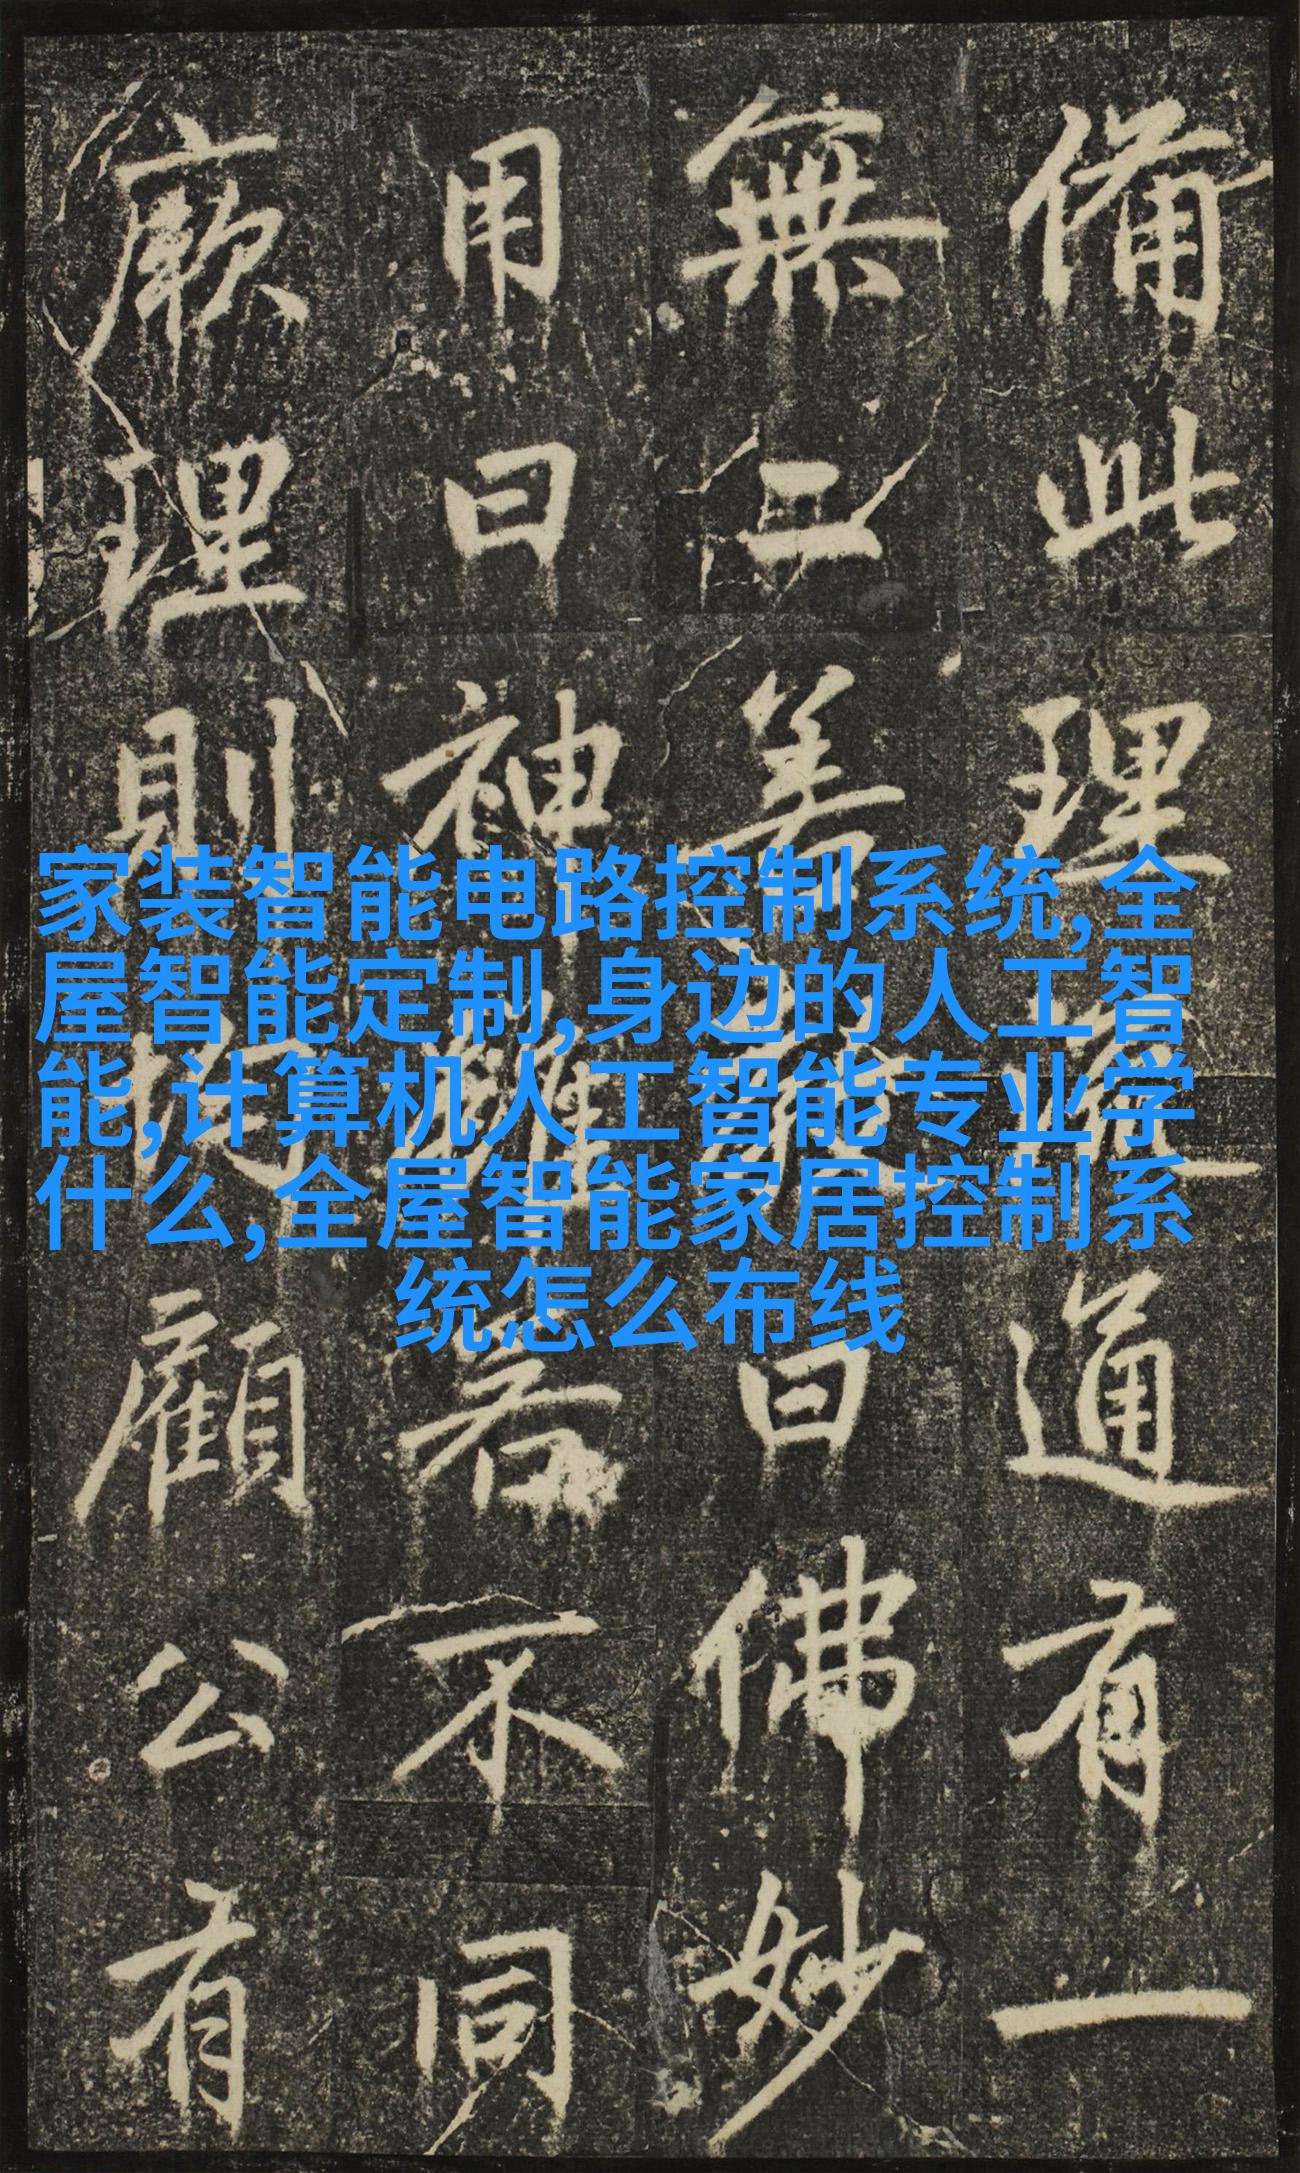 備此理通有一
無曰佛妙
用曰神難若不同
厥理則顧公有
家装智能电路控制系统,全
屋智能定制,身边的人工智
能,计算机人工智能专业学
什么,全屋智能家居控制系
统怎么布线